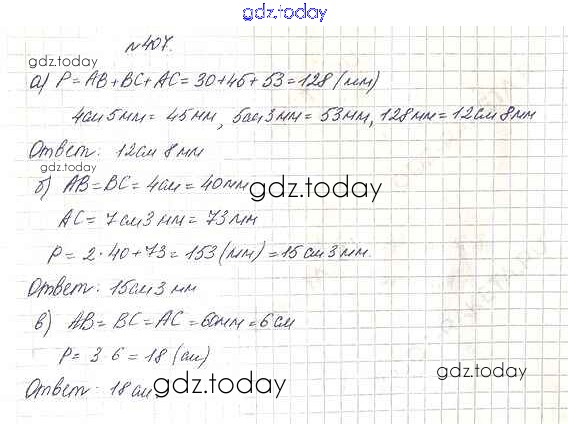 gdz.today
№407.
gdz.today
а) P = AB + BC + AC = 30 + 45 + 53 = 128 (мм)
4см 5мм = 45мм, 5см 3мм = 53мм, 128мм = 12см 8мм
Ответ: 12см 8мм
gdz.today
б) AB = BC = 4см = 40мм
gdz.today
AC = 7см 3мм = 73мм
P = 2 · 40 + 73 = 153 (мм) = 15см 3мм.
Ответ: 15см 3мм
в) AB = BC = AC = 60мм = 6см
P = 3 · 6 = 18 (см)
gdz.today
Ответ: 18см.
gdz.today